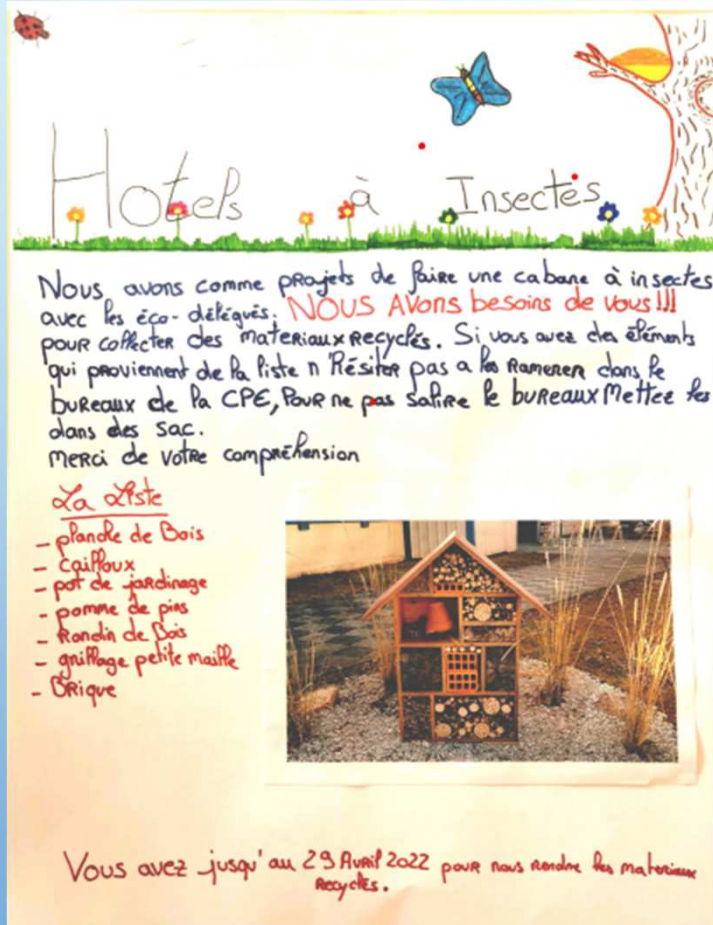 Hotels à Insectes
Nous avons comme projets de faire une cabane à insectes
avec les éco-délégués. NOUS Avons besoins de vous!!!
pour collecter des materiaux Recyclés. Si vous avez des éléments
qui proviennent de la liste n'hésiter pas a les Ramener dans le
bureaux de la CPE, Pour ne pas salire le bureaux Mettez les
dans des sac.
Merci de votre compréhension
La Liste
- planche de Bois
- cailloux
- pot de jardinage
- pomme de pins
- Rondin de Bois
- grillage petite maille
- Brique
Vous avez jusqu'au 29 Avril 2022 pour nous rendre les materiaux
Recyclés.